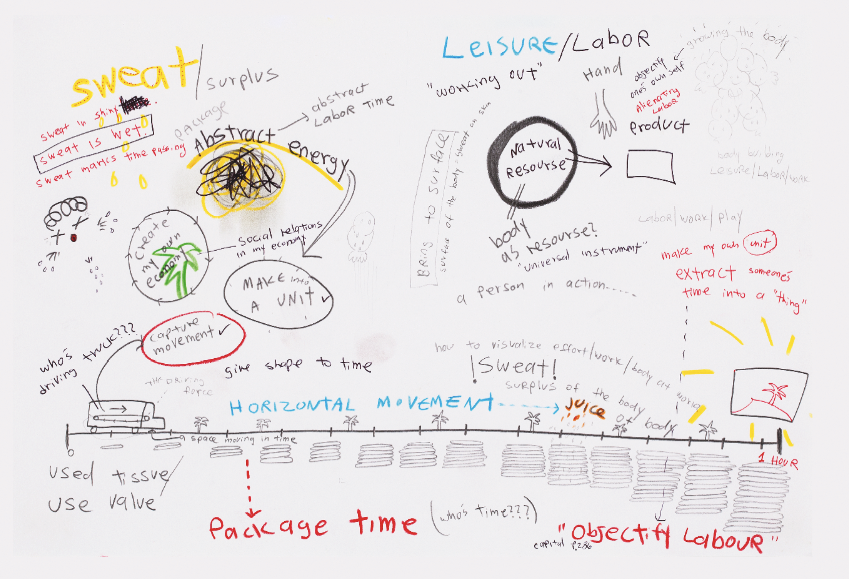 sweat/surplus
sweat in shiny
sweat is wet!
sweat marks time passing
PACKAGE
Abstract energy
abstract
LABOR TIME
create
my own
economy
social relations
in my economy
MAKE into
A UNIT ✓
capture
movement ✓
who's
driving truck???
THE DRIVING
FORCE
give shape to time
LEISURE/LABOR
"working out"
Hand
objectify
one's own self
Alienating
Labor
product
growing the body
NATURAL
RESOURSE
BRING to surface
surface of the body - sweat on skin
body
as resourse?
"universal instrument"
a person in action.....
body building
LEISURE/LABOR/WORK
LABOR/WORK/PLAY
make my own unit
extract someone's
time into a "thing"
how to visualize effort/work/body at work
!Sweat!
SURPLUS of the body
JUICE of body
HORIZONTAL MOVEMENT
a space moving in time
0
1 HOUR
used tissue/
USE VALUE/
Package time (who's time???)
"Objectify Labour"
capital p.286